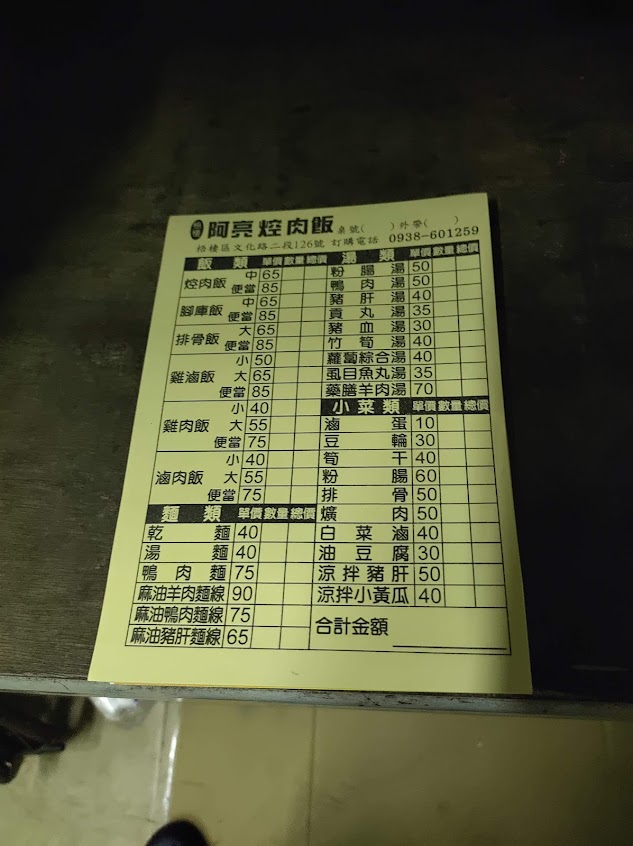 阿亮焢肉飯 桌號( ) 外帶( )
梧棲區文化路二段126號 訂購電話 0938-601259
飯類 單價 數量 總價
焢肉飯 中 65
便當 85
腳庫飯 中 65
便當 85
排骨飯 大 65
便當 85
雞滷飯 小 50
大 65
便當 85
雞肉飯 小 40
大 55
便當 75
滷肉飯 小 40
大 55
便當 75
麵類 單價 數量 總價
乾麵 40
湯麵 40
鴨肉麵 75
麻油羊肉麵線 90
麻油鴨肉麵線 75
麻油豬肝麵線 65
湯類 單價 數量 總價
粉腸湯 50
鴨肉湯 50
豬肝湯 40
貢丸湯 35
豬血湯 30
竹筍湯 40
蘿蔔綜合湯 40
虱目魚丸湯 35
藥膳羊肉湯 70
小菜類 單價 數量 總價
滷蛋 10
豆輪 30
筍干 40
粉腸 60
排骨 50
爌肉 50
白菜滷 40
油豆腐 30
涼拌豬肝 50
涼拌小黃瓜 40
合計金額